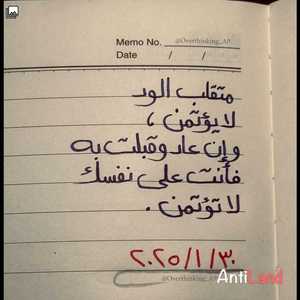 Memo No.
@Overthinking_AP
Date / /
متقلب الود
لا يؤتمن ،
وإن عاد وقبلت به
فأنت على نفسك
لا تؤتمن .
٢٠٢٥/١/٣٠
@Overthinking_AP
AntiLend